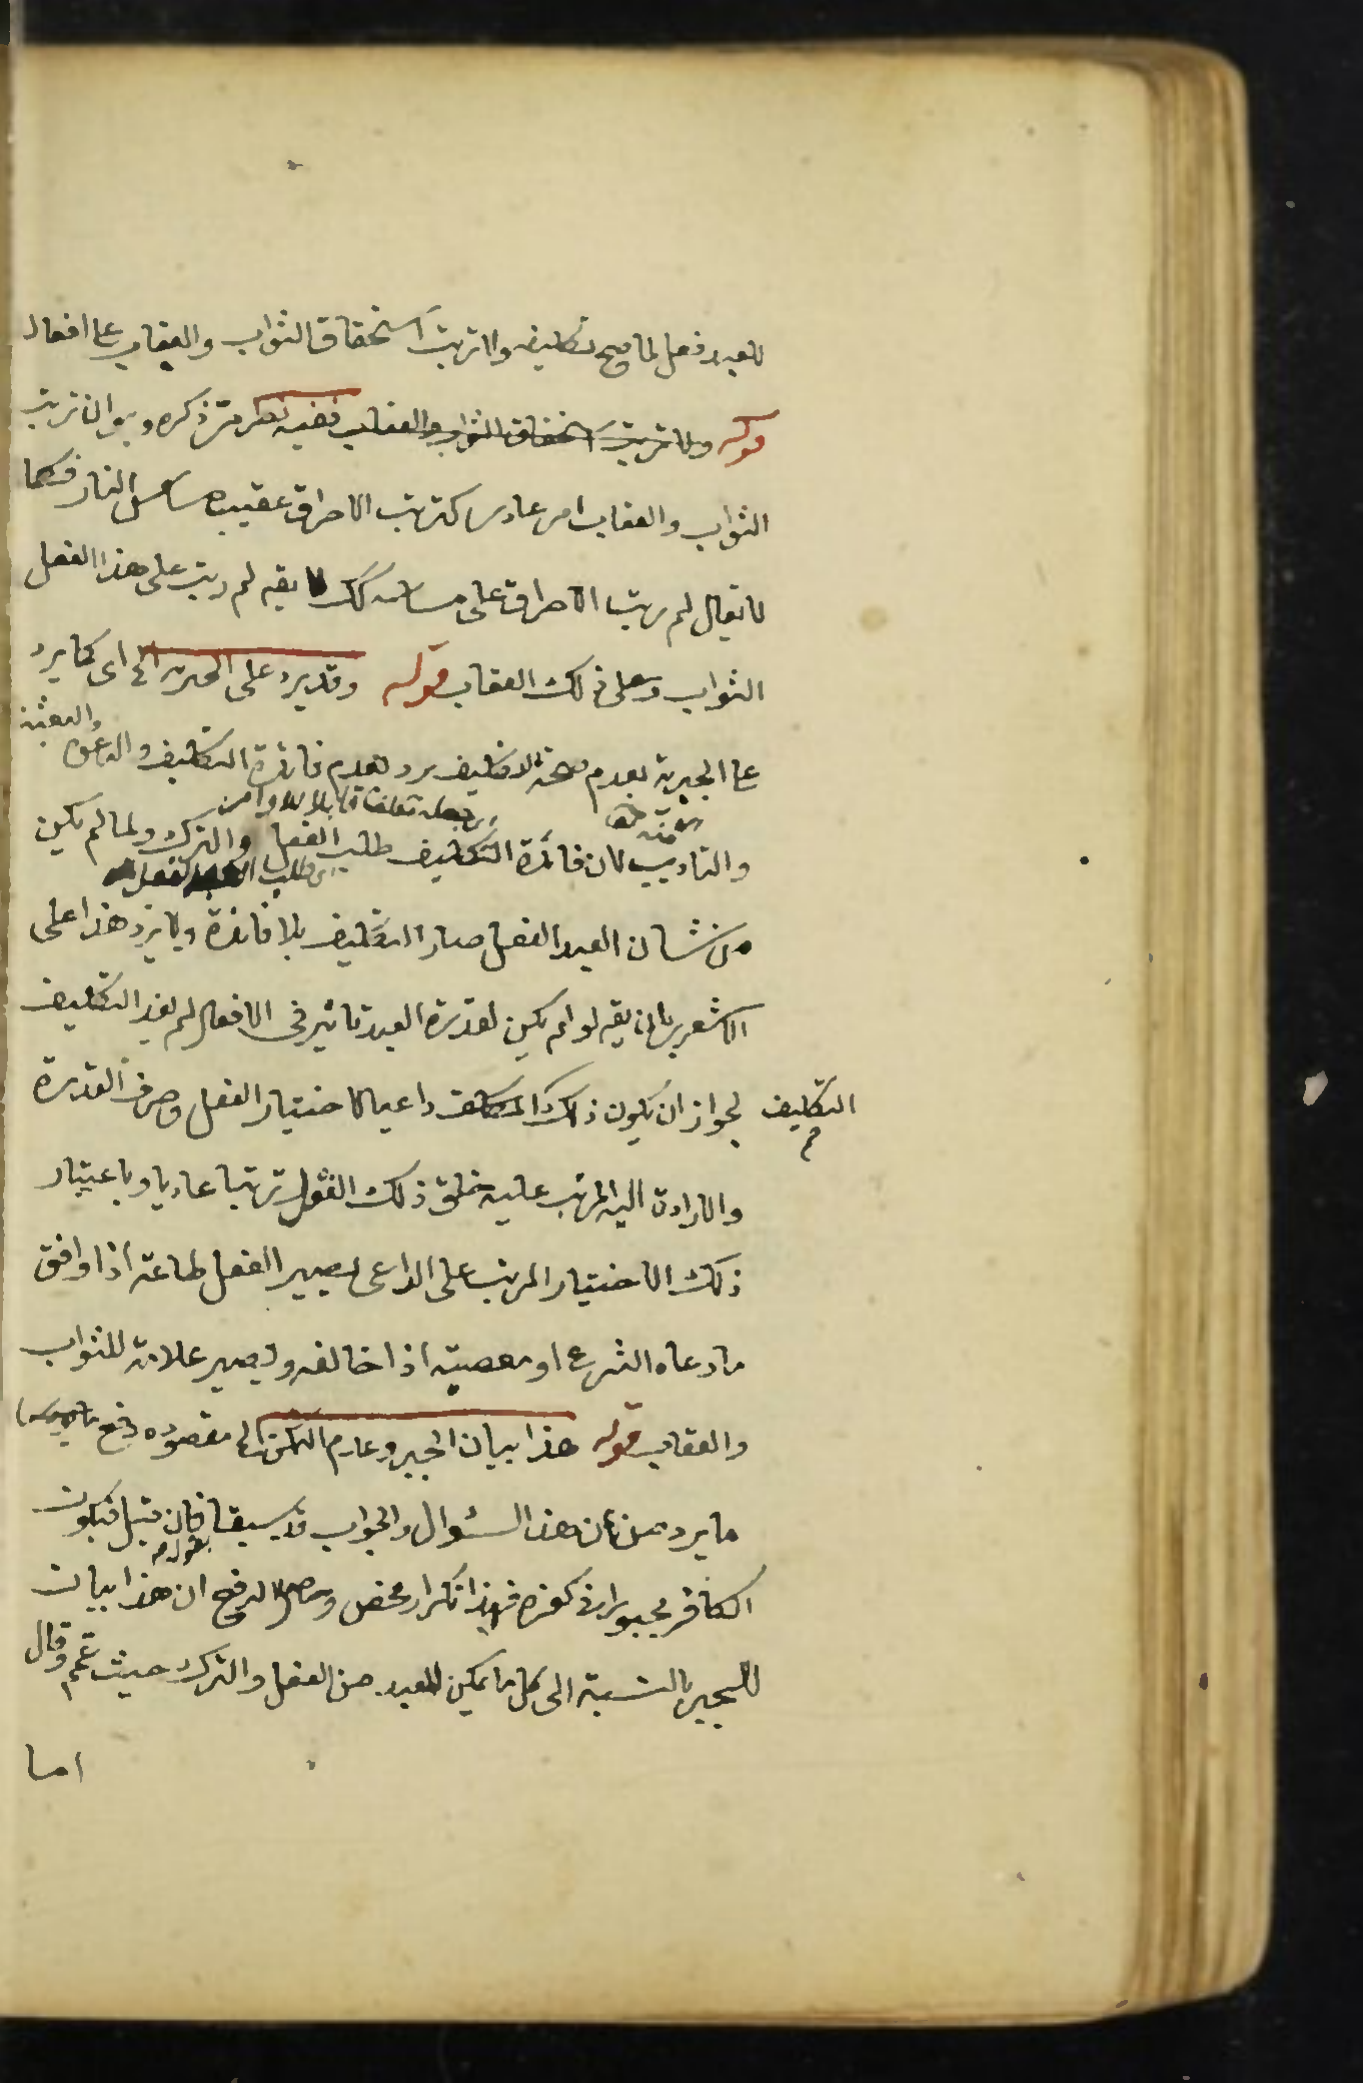 للعبد فعل لما صح تكليفه ولا ترتب استحقاق الثواب والعقاب على افعاله
قوله ولا ترتب استحقاق الثواب والعقاب ففيه نظر مر ذكره وهو ان ترتب
الثواب والعقاب امر عادى كترتب الاحراق عقيب مساس النار فكما
لا يقال لم ترتب الاحراق على مساس كك لا يقه لم رتب على هذا الفعل
الثواب وعلى ذلك العقاب قوله وقد يرد على الجبرية الخ اى كما يرد
على الجبرية بعدم صحة التكليف يرد بعدم فائدة التكليف والدعوة والبعثة
والتاديب لان فائدة التكليف طلب الفعل والترك ولما لم يكن
من شان العبد الفعل صار التكليف بلا فائدة ولا يرد هذا على
الاشعرى بان يقه لو لم يكن لقدرة العبد تاثير فى الافعال لم يفد التكليف
التكليف لجواز ان يكون ذلك داعيا لاختيار الفعل وصرف القدرة
والارادة اليه المرتب عليه خلق ذلك الفعل ترتبا عاديا وباعتبار
ذلك الاختيار المرتب على الداعى يصير الفعل طاعة اذا وافق
ما دعاه الشرع او معصية اذا خالفه ويصير علامة للثواب
والعقاب قوله هذا بيان الجبر وعدم التمكن الخ مقصوده دفع
ما يرد من ان هذا السؤال والجواب قد سبقا فان قيل فيكون
الكافر مجبورا فى كفره فهذا تكرار محض وحاصل الدفع ان هذا بيان
للجبر بالنسبة الى كل ما يمكن للعبد من الفعل والترك حيث عمم وقال
اما